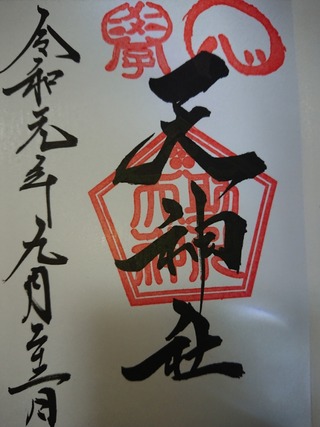 天神社
令和元年九月二十一日